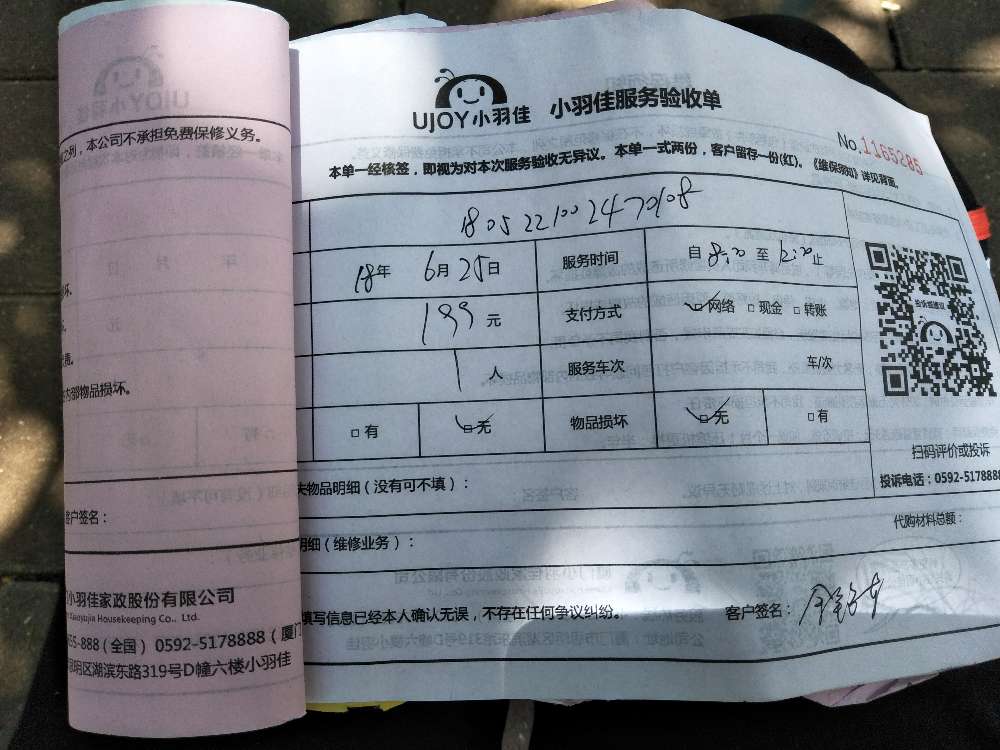 UJOY小羽佳 小羽佳服务验收单
No.1165285
本单一经核签，即视为对本次服务验收无异议。本单一式两份，客户留存一份(红)。《维保须知》详见背面。
18年 6月25日 服务时间 自 8:30 至 12:30止
199元 支付方式 网络 现金 转账
1人 服务车次 车/次
有 无 物品损坏 无 有
扫码评价或投诉
投诉电话：0592-5178888
物品明细（没有可不填）：
代购材料总额：
明细（维修业务）：
填写信息已经本人确认无误，不存在任何争议纠纷。 客户签名：
之列，本公司不承担免费保修义务。
坏。
内部物品损坏。
客户签名：
小羽佳家政股份有限公司
Xiaoyujia Housekeeping Co., Ltd.
-888(全国) 0592-5178888(厦门
明区湖滨东路319号D幢六楼小羽佳